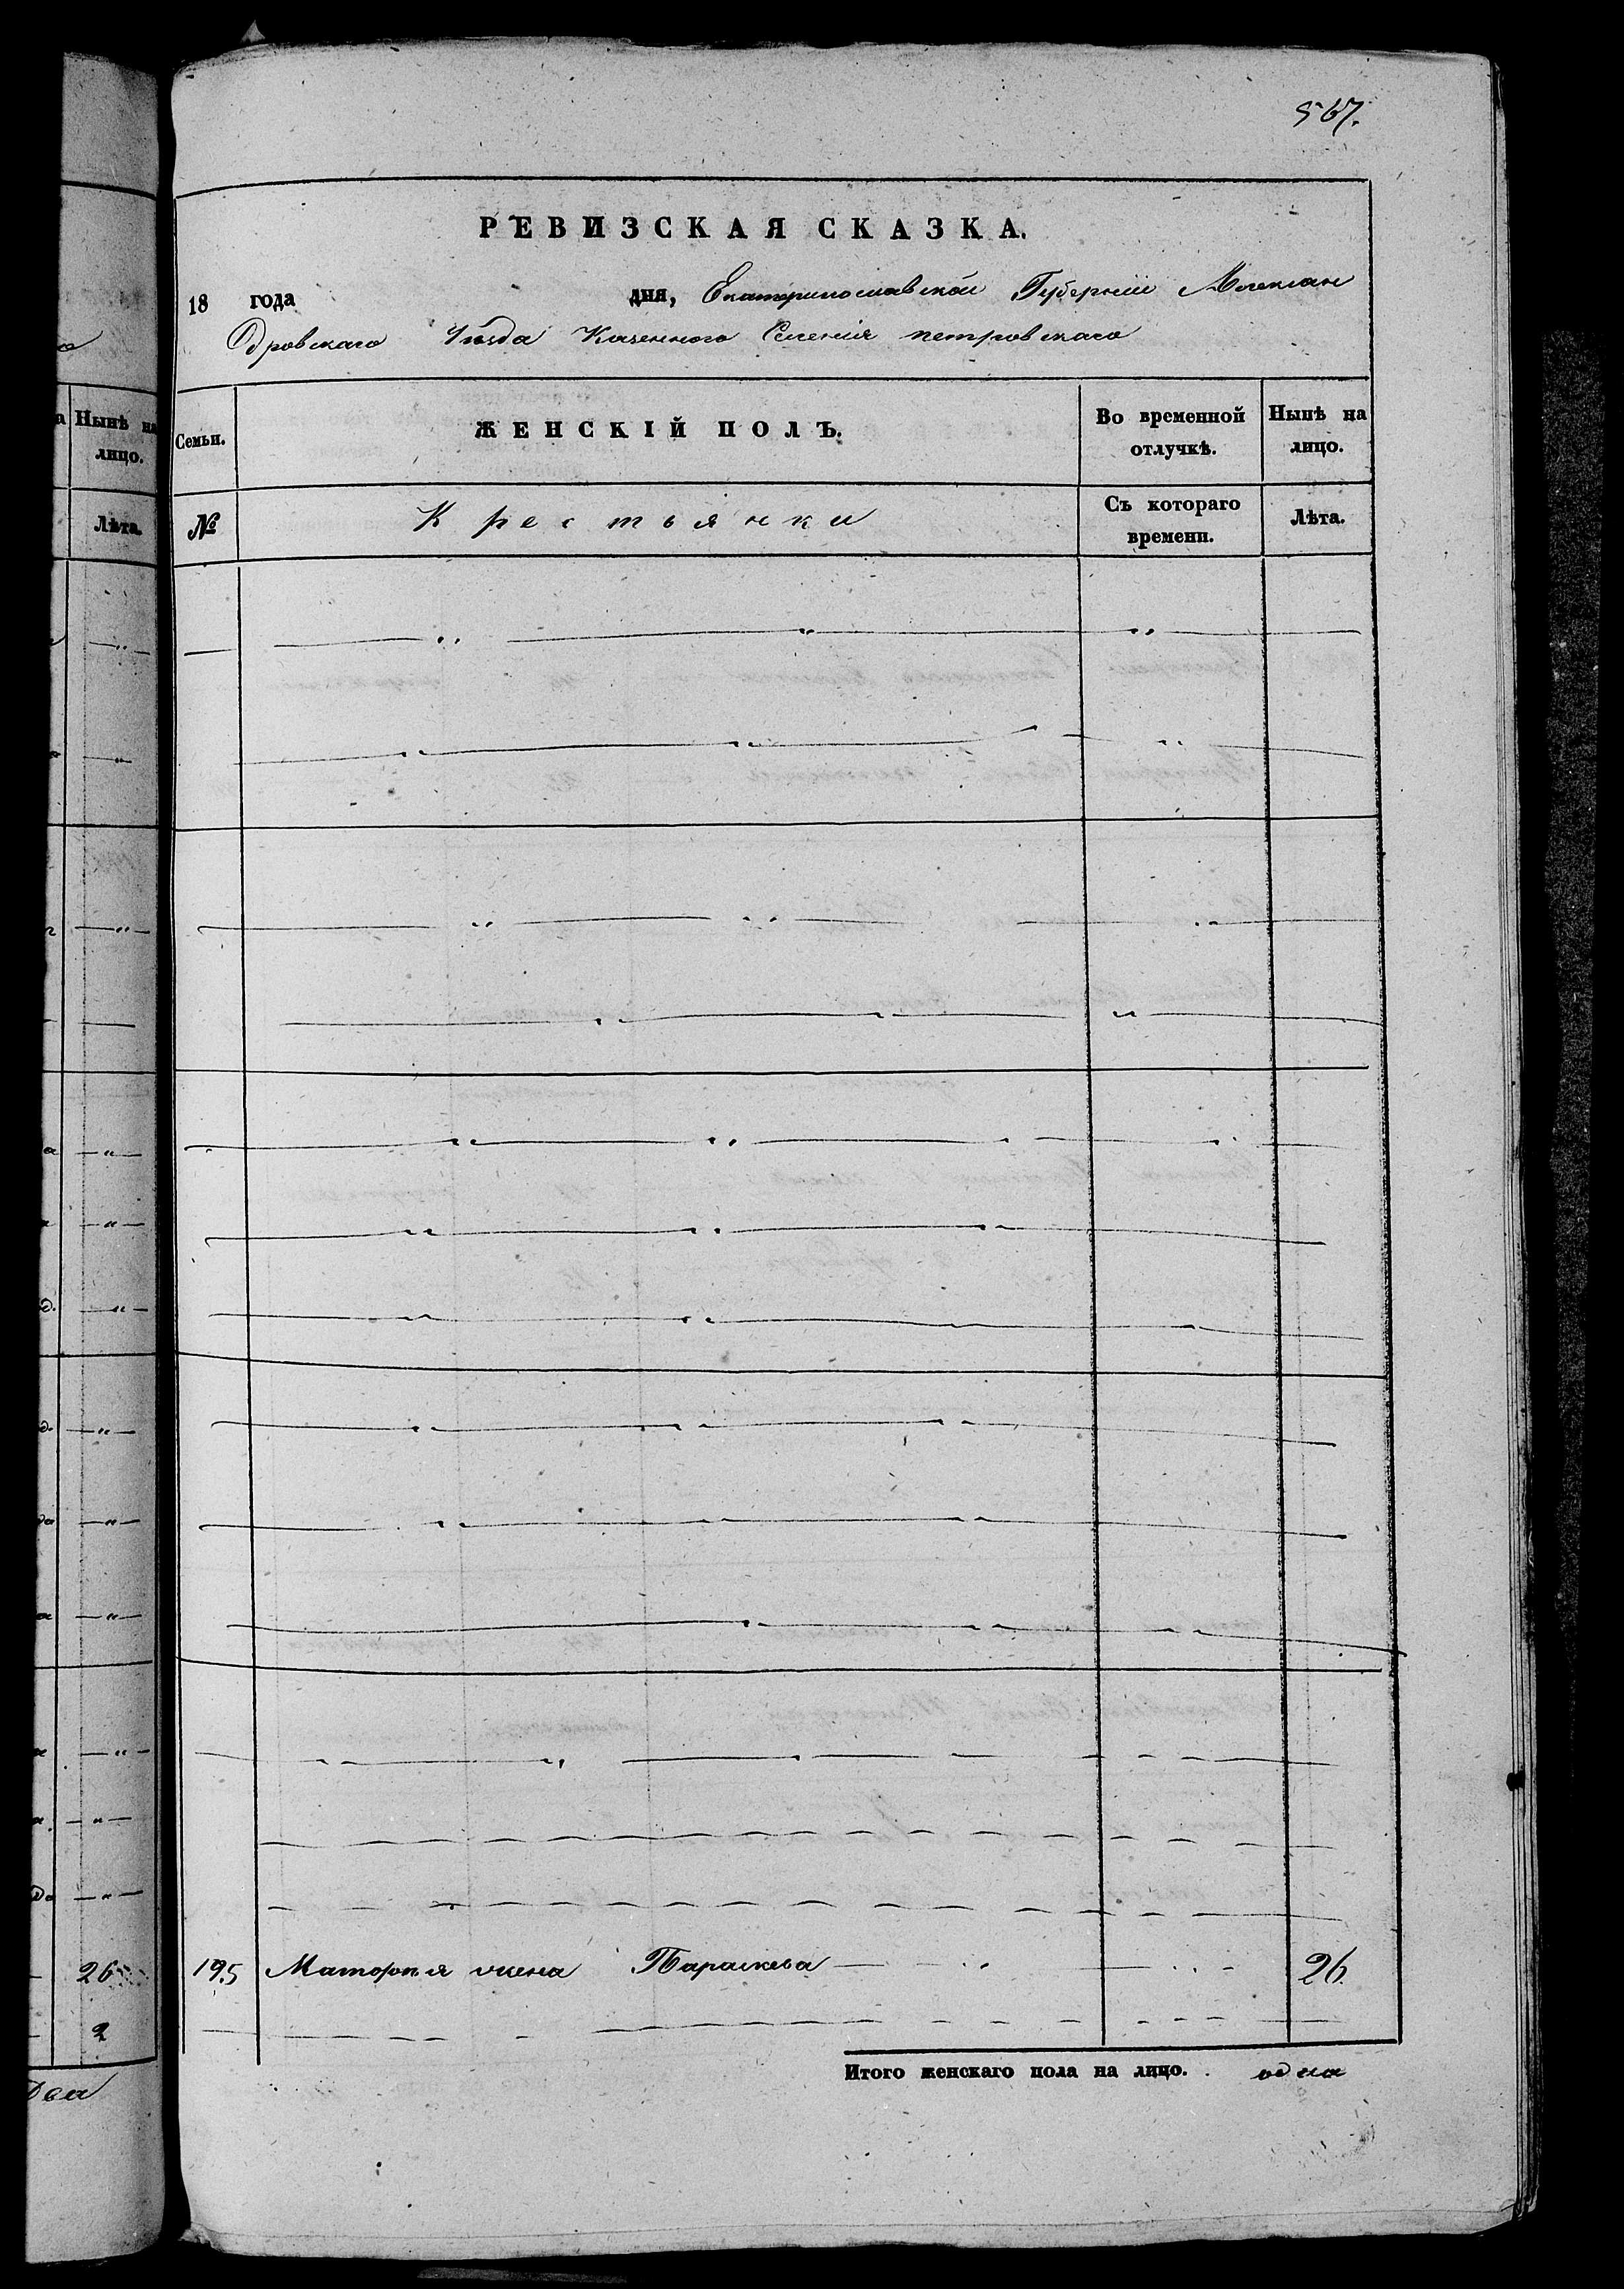 567.
РЕВИЗСКАЯ СКАЗКА.
18 года дня, Екатеринославской Губернии Александровскаго Уѣзда Казенного Селенія петровскаго
Нынѣ на лицо.
Лѣта.
26
2
два
Семьи.
ЖЕНСКІЙ ПОЛЪ.
Во временной отлучкѣ.
Нынѣ на лицо.
№
Крестьянки
Съ котораго времени.
Лѣта.
195 Маторпія жена Параскева 26.
Итого женскаго пола на лицо. . одна